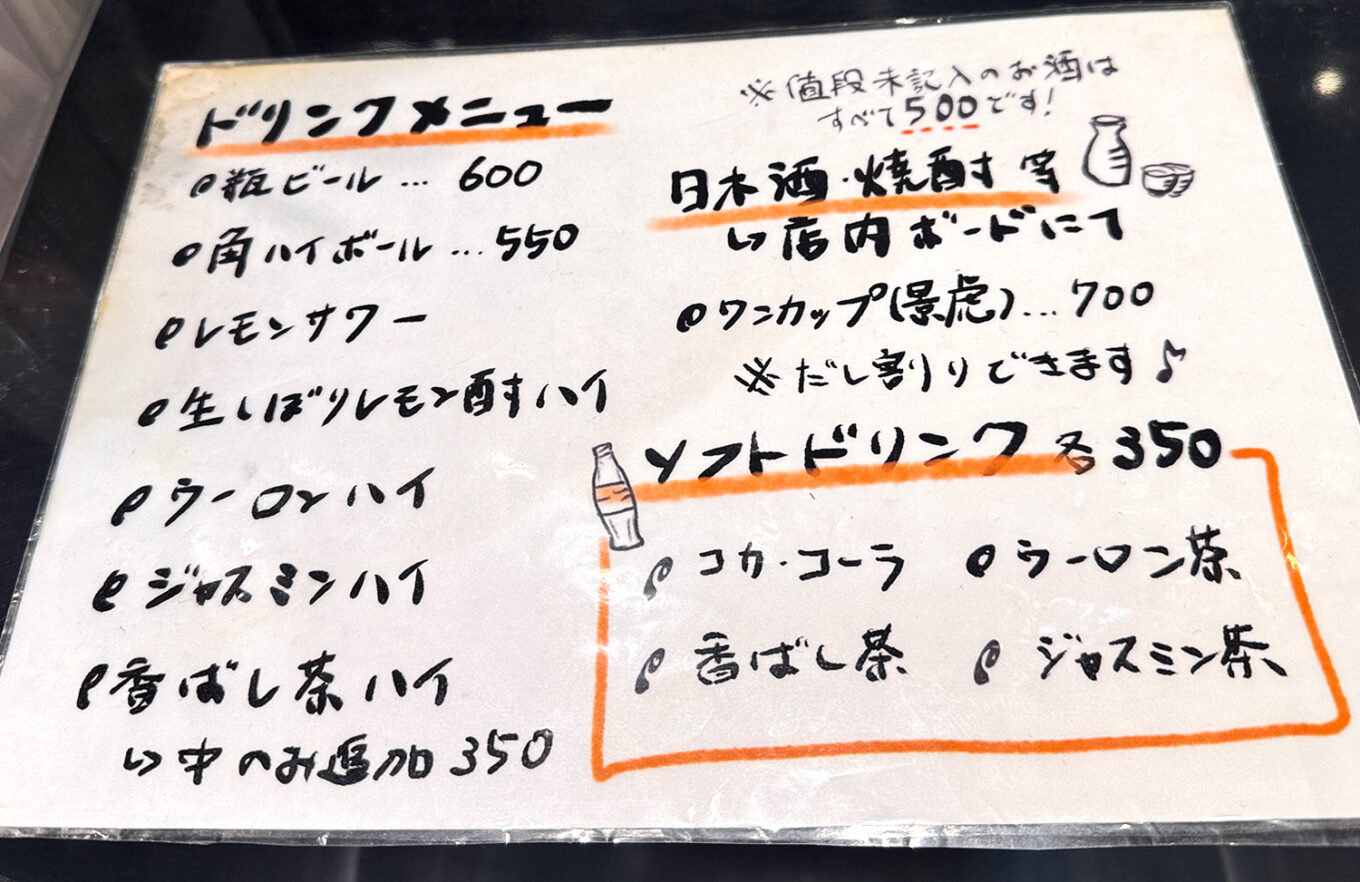 ドリンクメニュー
・瓶ビール … 600
・角ハイボール … 550
・レモンサワー
・生しぼりレモン酎ハイ
・ウーロンハイ
・ジャスミンハイ
・香ばし茶ハイ
↳中のみ追加 350
※値段未記入のお酒は
すべて500です!
日本酒・焼酎 等
↳店内ボードにて
・ワンカップ(景虎)…700
※だし割りできます♪
ソフトドリンク 各350
・コカ・コーラ ・ウーロン茶
・香ばし茶 ・ジャスミン茶